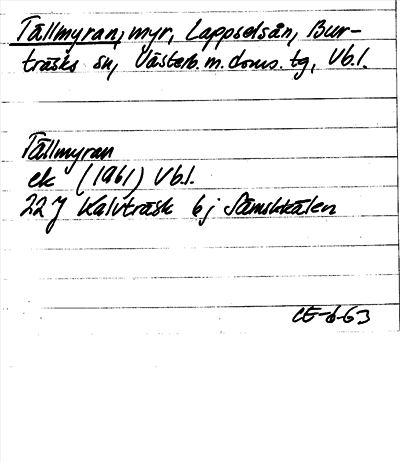 Tällmyran, myr, Lappselsån, Bur-
träsks sn, Västerb. m. doms. tg, Vb.l.
Tällmyran
ek (1961) Vb.l.
22 J Kalvträsk 6 j Sämskkälen
CE-6-63